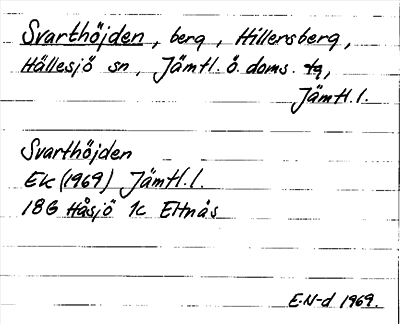 Svarthöjden, berg, Hillersberg,
Hällesjö sn, Jämtl. ö. doms. tg,
Jämtl. l.
Svarthöjden
Ek (1969) Jämtl. l.
18G Håsjö 1c Eltnås
E.N-d 1969.